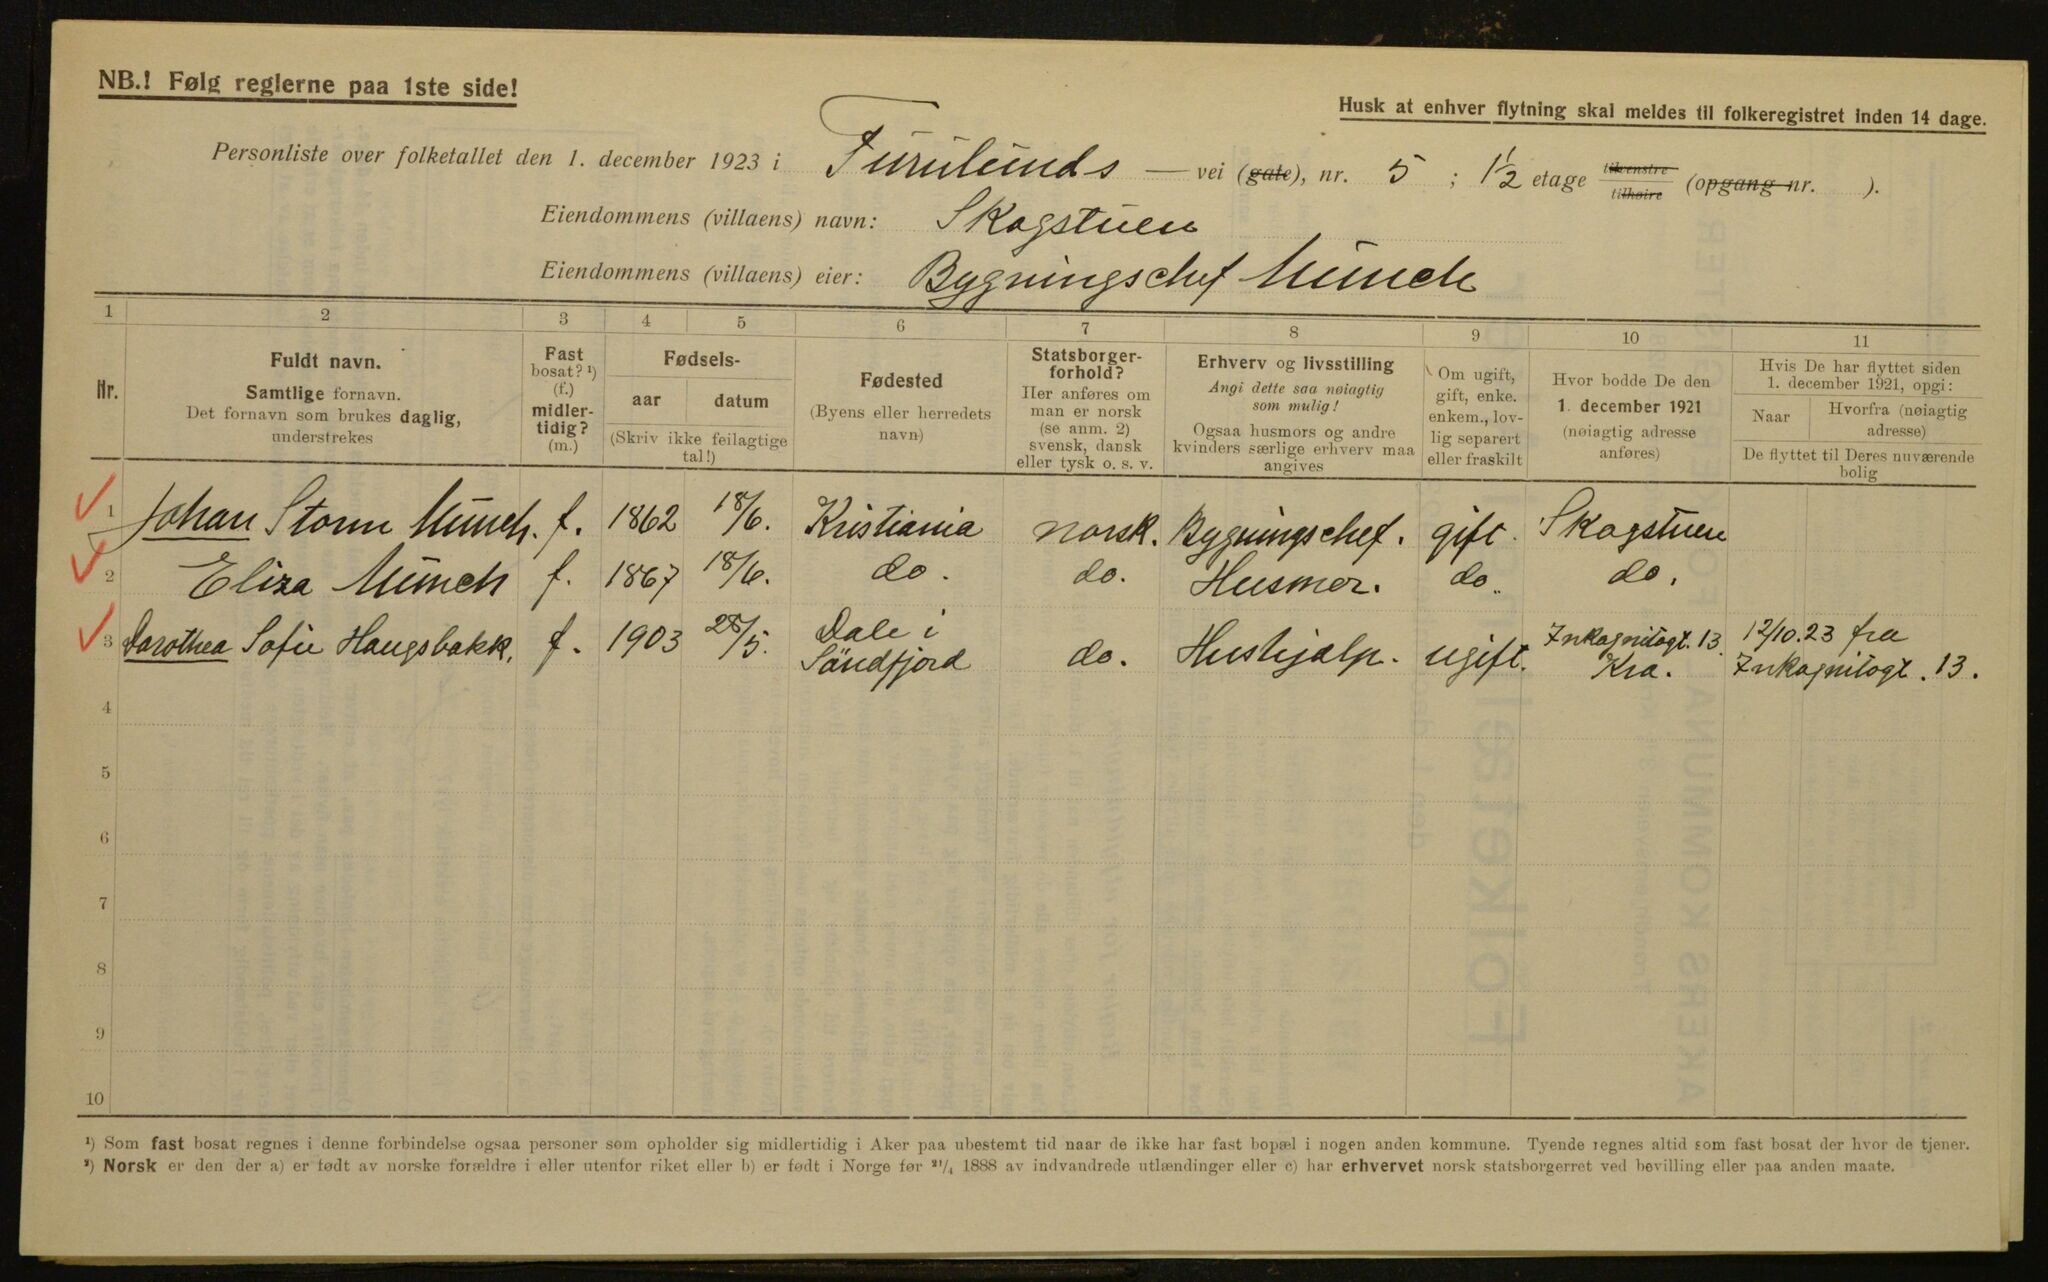 NB.! Følg reglerne paa 1ste side!
Husk at enhver flytning skal meldes til folkeregistret inden 14 dage.
Personliste over folketallet den 1. december 1923 i Furulunds — vei (gate), nr. 5 ; 1½ etage tilvenstre tilhøire (opgang nr. ).
Eiendommens (villaens) navn: Skogstuen
Eiendommens (villaens) eier: Bygningschef Munch
1 2 3 4 5 6 7 8 9 10 11
Nr.
Fuldt navn.
Samtlige fornavn.
Det fornavn som brukes daglig,
understrekes
Fast
bosat? ¹)
(f.)
midler-
tidig?
(m.)
Fødsels-
aar datum
(Skriv ikke feilagtige
tal!)
Fødested
(Byens eller herredets
navn)
Statsborger-
forhold?
Her anføres om
man er norsk
(se anm. 2)
svensk, dansk
eller tysk o. s. v.
Erhverv og livsstilling
Angi dette saa nøiagtig
som mulig!
Ogsaa husmors og andre
kvinders særlige erhverv maa
angives
Om ugift,
gift, enke.
enkem., lov-
lig separert
eller fraskilt
Hvor bodde De den
1. december 1921
(nøiagtig adresse
anføres)
Hvis De har flyttet siden
1. december 1921, opgi:
Naar Hvorfra (nøiagtig
adresse)
De flyttet til Deres nuværende
bolig
1 Johan Storm Munch. f. 1862 18/6. Kristiania norsk. Bygningschef. gift. Skogstuen
2 Eliza Munch f. 1867 18/6. do. do. Husmor. do. do.
3 Dorothea Sofie Haugsbakk. f. 1903 28/5. Dale i Söndfjord do. Hushjælp. ugift. Inkognitogt. 13. Kra. 12/10.23 fra Inkognitogt. 13.
4
5
6
7
8
9
10
¹) Som fast bosat regnes i denne forbindelse ogsaa personer som opholder sig midlertidig i Aker paa ubestemt tid naar de ikke har fast bopæl i nogen anden kommune. Tyende regnes altid som fast bosat der hvor de tjener.
²) Norsk er den der a) er født av norske forældre i eller utenfor riket eller b) er født i Norge før ²¹/₄ 1888 av indvandrede utlændinger eller c) har erhvervet norsk statsborgerret ved bevilling eller paa anden maate.